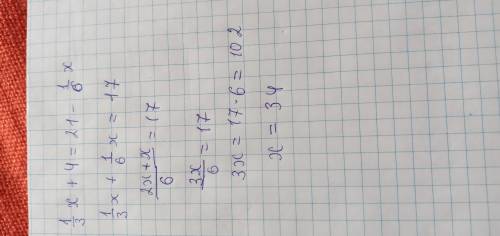 1/3 x + 4 = 21 - 1/6 x
1/3 x + 1/6 x = 17
2x+x/6 = 17
3x/6 = 17
3x = 17·6 = 102
x = 34